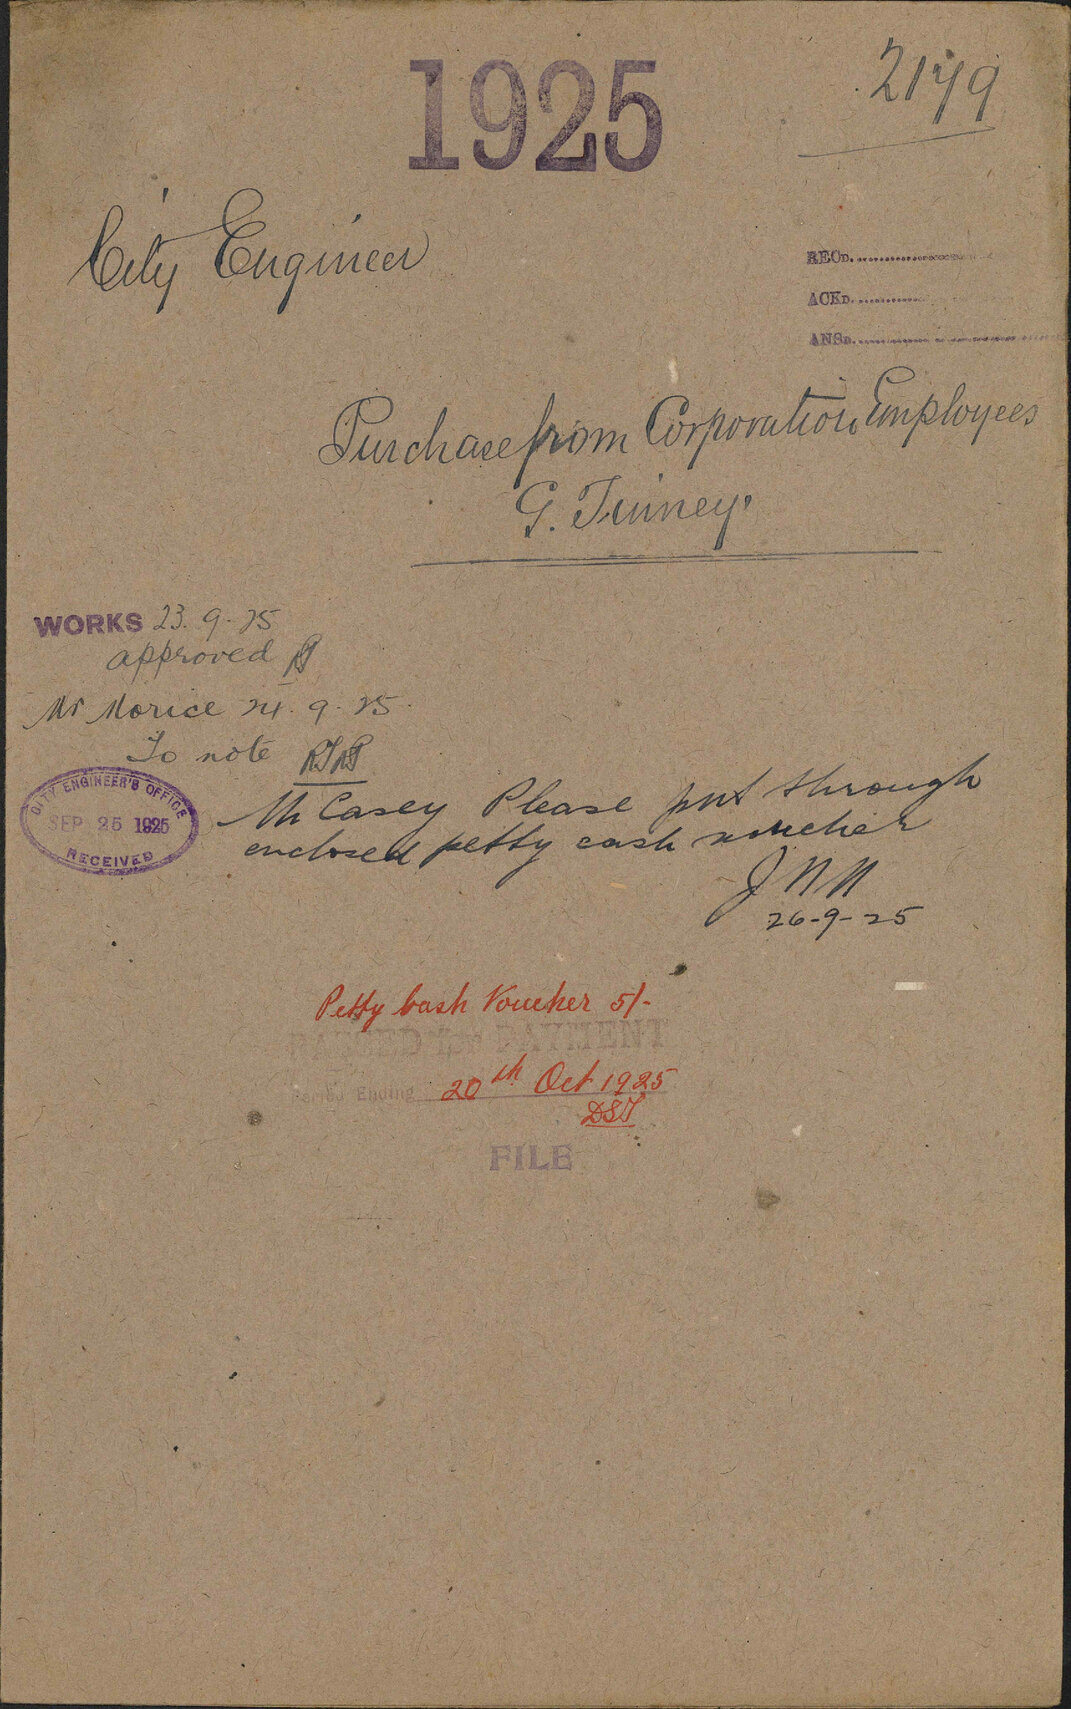 1925
2179
City Engineer
RECD.
ACKD.
ANSD.
Purchase from Corporation Employees
G. Tuiney.
WORKS 23.9.25
approved
Mr Morice 24.9.25.
To note
CITY ENGINEER'S OFFICE
SEP 25 1925
RECEIVED
Mr Casey Please put through
enclosed petty cash voucher
26-9-25
Petty Cash Voucher 5/-
PASSED for PAYMENT
Period Ending 20th Oct 1925
FILE